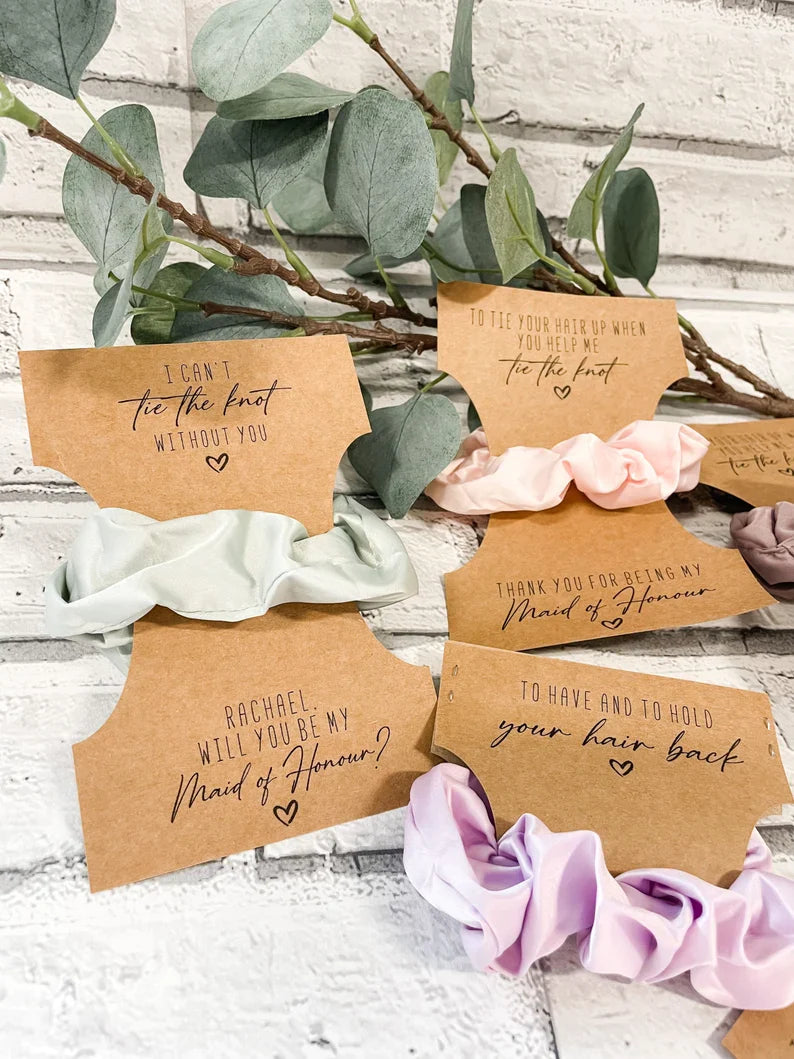 I CAN'T
tie the knot
WITHOUT YOU
RACHAEL.
WILL YOU BE MY
Maid of Honour?
TO TIE YOUR HAIR UP WHEN
YOU HELP ME
tie the knot
THANK YOU FOR BEING MY
Maid of Honour
tie the kn
TO HAVE AND TO HOLD
your hair back